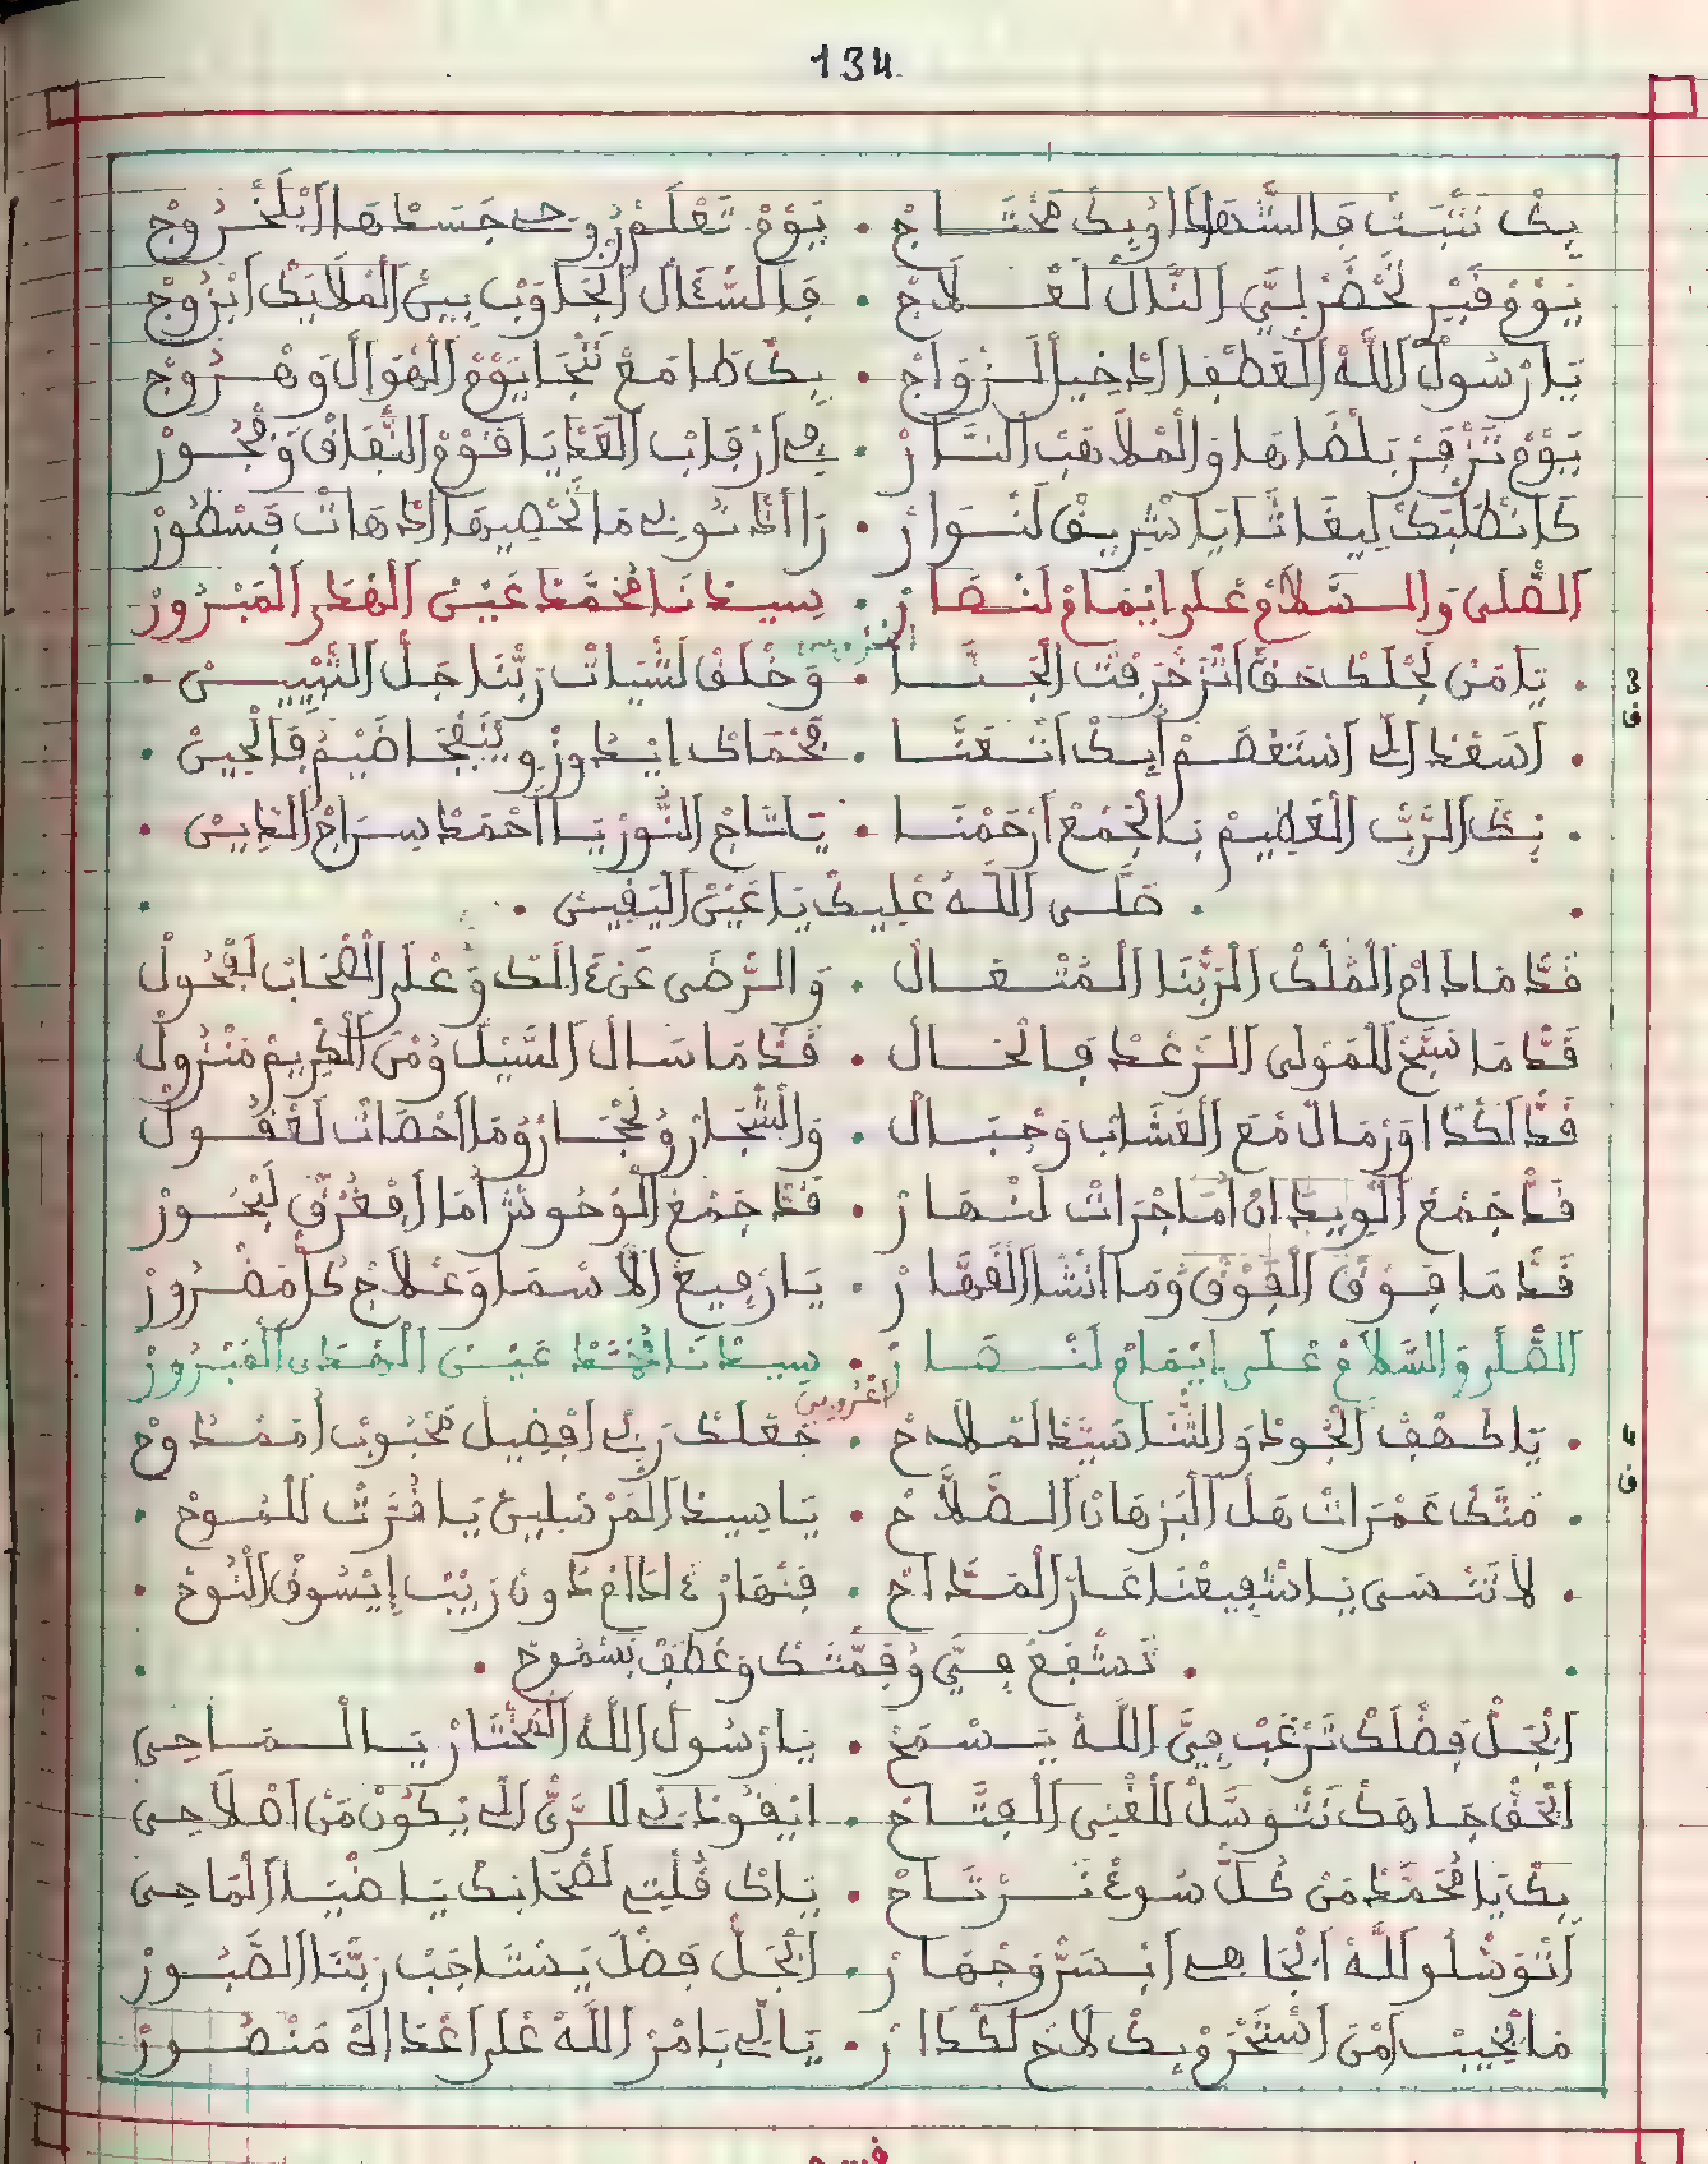 134
بك نثبت فالشهادا وبك نحتاج • يوم تعلم روحي جسدها ابلخروج
يوم فبر نحضر ليَّ النال لعلاج • فالسئال انجاوب بين الملايك ابزوج
يا رسول الله المصطفى ادخيل الزواج • بك طامع ننجا يوم الهوال وهروج
يوم تزفر بلضاها والملاهب النار • في ارقاب العديا فوم النفاق وفجور
كانطلبك ليغاثا يا شريف لنوار • را ادنوبي ما نحصيها ادهات فسطور
الصلى والسلام على ايمام لنصار • سيدنا محمد عين الهدى المبرور
العروبي
3
ف
• يا من لجلك حق اتزخرفت الجنا • وخلق لشيات ربنا جل النبيين •
• اسعد الي استعصم ابك اتعنا • فحماك ايدوز وينجا ضيم فالحين •
• بك الرب العضيم بالجمع ارحمنا • يا تاج النور يا احمد سراج الدين •
• صلى الله عليك يا عين اليفين •
فد ما دام الملك الربنا المتعال • والرضى عن ءالك وعلى الصحاب لفحول
فد ما سبح للمولى الرعد فالحال • فد ما سال السيل ومن الكريم منزول
فد لكدا ورمال مع العشاب وجبال • والشجار وحجار وما احصات لعفول
فد جمع الويدان اما جرات لنهار • فد جمع الوحوش اما افغرف لبحور
فد ما فوف الفوف وما انشا الفهار • يا رفيع الاسما وعلاج كل مضرور
الصلى والسلام على ايمام لنصار • سيدنا محمد عين الهدى المبرور
لعروبي
4
ف
• يا كهف الجود والثنا سيد لملاح • جعلك ربي افضيل محبوب اممدوح
• منك عمرات هل البرهان الصلاح • يا سيد المرسلين يا فرت للموح •
• لا تنسى يا شفيعنا عار المداح • فنهار ءاداع دون ريب ايسوف النوح •
• تشفع فيَّ وفمتك وعطف بسموح •
ابجل فضلك ترغب فيَّ الله يسمح • يا رسول الله المختار يا الماحي
ابحق جاهك نتوسل للغني الفتاح • ايفودني للرى الي يكون من اصلاحي
بك يا محمد من كل سوء نرتاح • ياك فلت لصحابك يا ضيا الماحي
اتوسلو لله ابجاهي ابسر وجهار • ابجل فضل يستاجب ربنا الصبور
ما يخيب امن استحرم بك لاح لكدار • يا الي بامر الله على اعدائ منصور